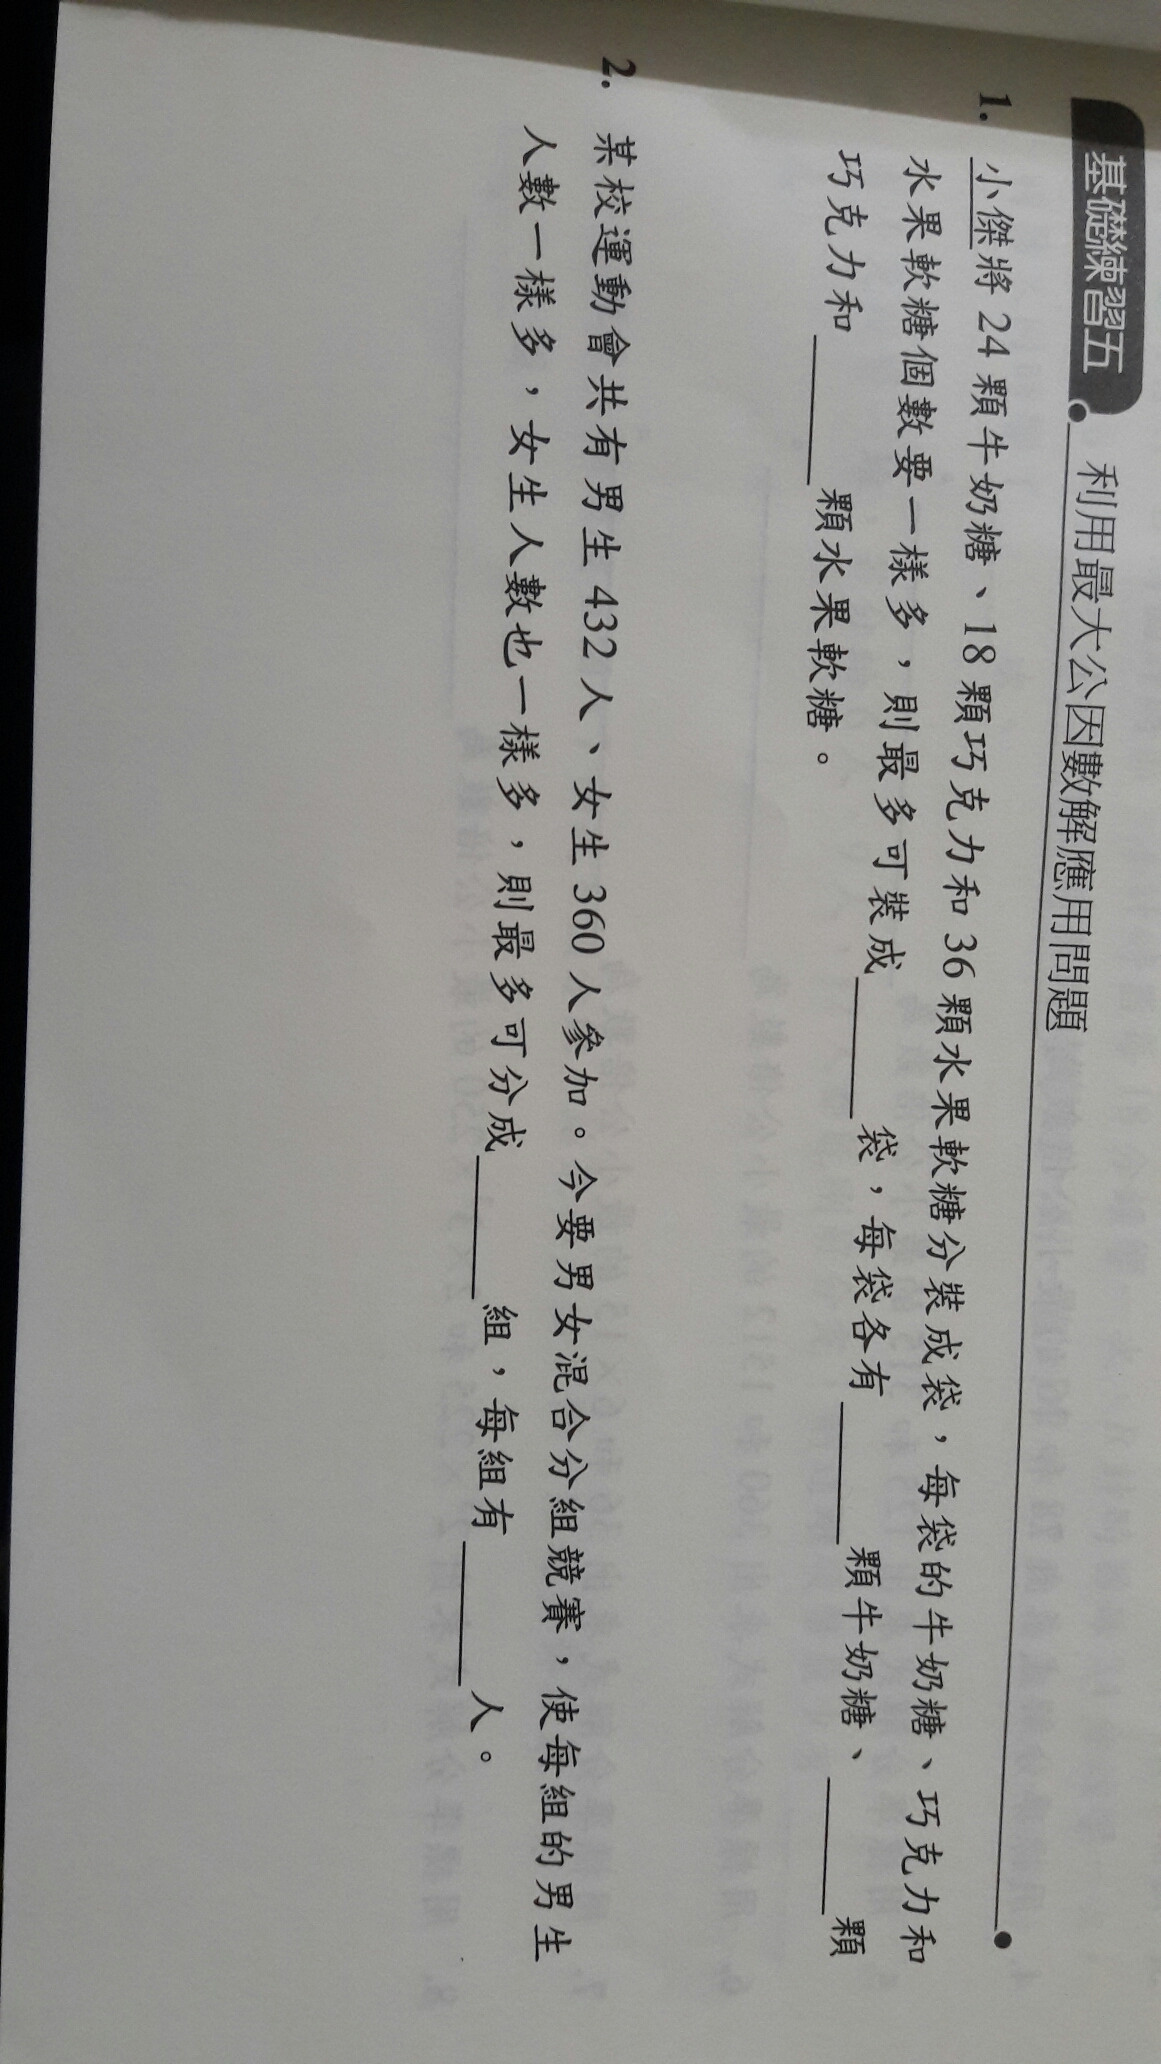 基礎練習五
利用最大公因數解應用問題
1. 小傑將 24 顆牛奶糖、18 顆巧克力和 36 顆水果軟糖分裝成袋，每袋的牛奶糖、巧克力和
水果軟糖個數要一樣多，則最多可裝成______袋，每袋各有______顆牛奶糖、______顆
巧克力和______顆水果軟糖。
2. 某校運動會共有男生 432 人、女生 360 人參加。今要男女混合分組競賽，使每組的男生
人數一樣多，女生人數也一樣多，則最多可分成______組，每組有______人。